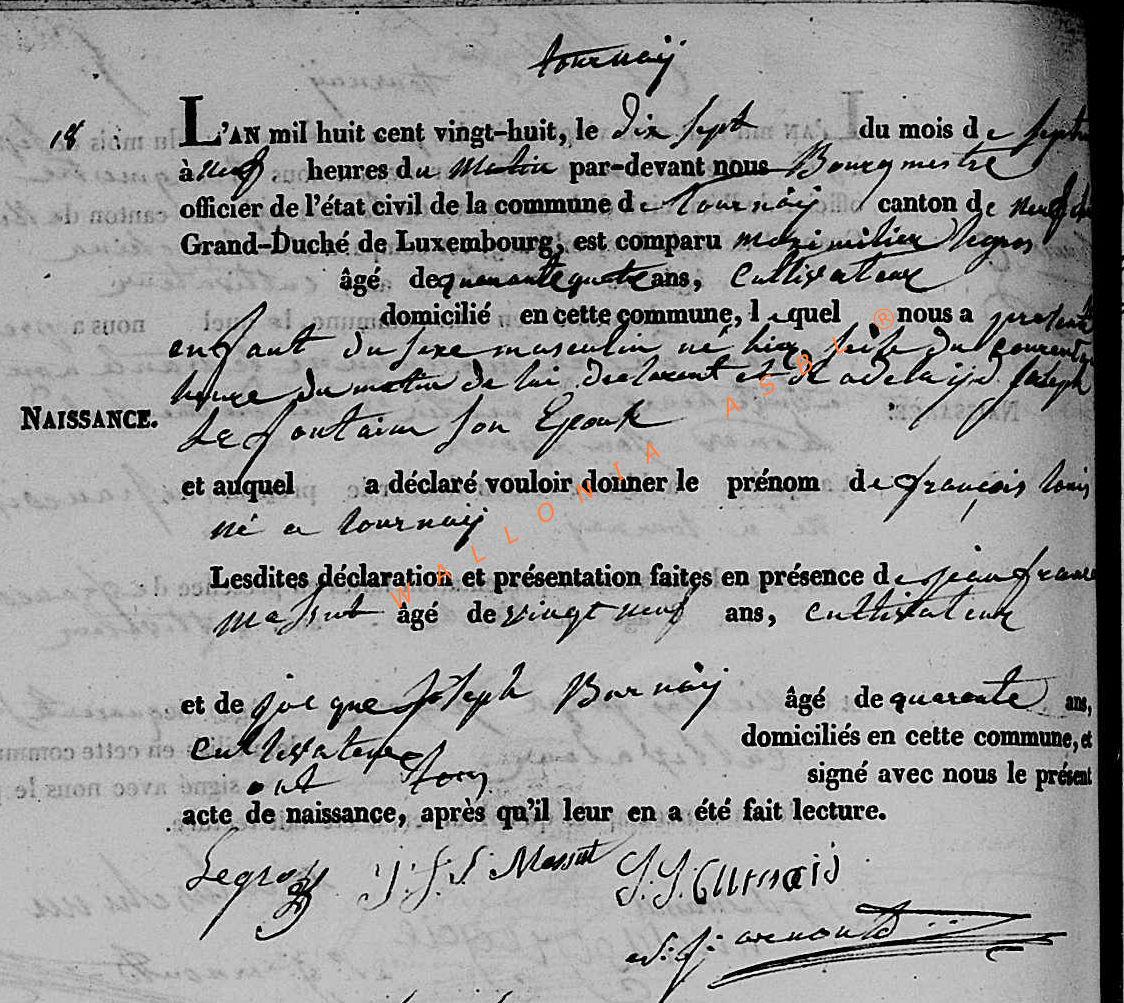 tournaij
18
L'AN mil huit cent vingt-huit, le dix sept du mois de septem
à neuf heures du matin par-devant nous Bourgmestre
officier de l'état civil de la commune de tournaij canton de neufch
Grand-Duché de Luxembourg, est comparu maximilien legros
âgé de quarante quatre ans, cultivateur
domicilié en cette commune, lequel nous a presenté
enfant du sexe masculin né hier seize du courent a
heure du matin de lui declarent et de adelaijd joseph
Lefontaine son Epouse
NAISSANCE.
et auquel a déclaré vouloir donner le prénom de françois louis
né a tournaij
Lesdites déclaration et présentation faites en présence de jean
massut âgé de vingt neuf ans, cultivateur
et de jacque joseph âgé de quarante ans,
cultivateur domiciliés en cette commune, et
ont tous signé avec nous le présent
acte de naissance, après qu'il leur en a été fait lecture.
Legros J. J. J. Massut J. J.
arnould
WALLONIA ASBL ®